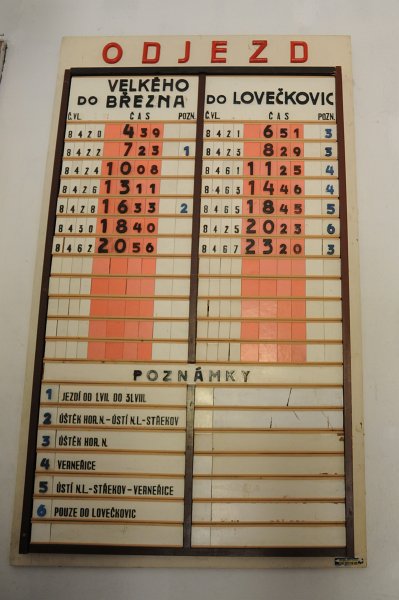 ODJEZD
DO VELKÉHO BŘEZNA
Č.VL. ČAS POZN.
8420 4 39
8422 7 23 1
8424 10 08
8426 13 11
8428 16 33 2
8430 18 40
8462 20 56
DO LOVEČKOVIC
Č.VL. ČAS POZN.
8421 6 51 3
8423 8 29 3
8461 11 25 4
8463 14 46 4
8465 18 45 5
8425 20 23 6
8467 23 20 3
POZNÁMKY
1 JEZDÍ OD 1.VII. DO 31.VIII.
2 ÚŠTĚK HOR.N.-ÚSTÍ N.L.-STŘEKOV
3 ÚŠTĚK HOR. N.
4 VERNEŘICE
5 ÚSTÍ N.L.-STŘEKOV-VERNEŘICE
6 POUZE DO LOVEČKOVIC